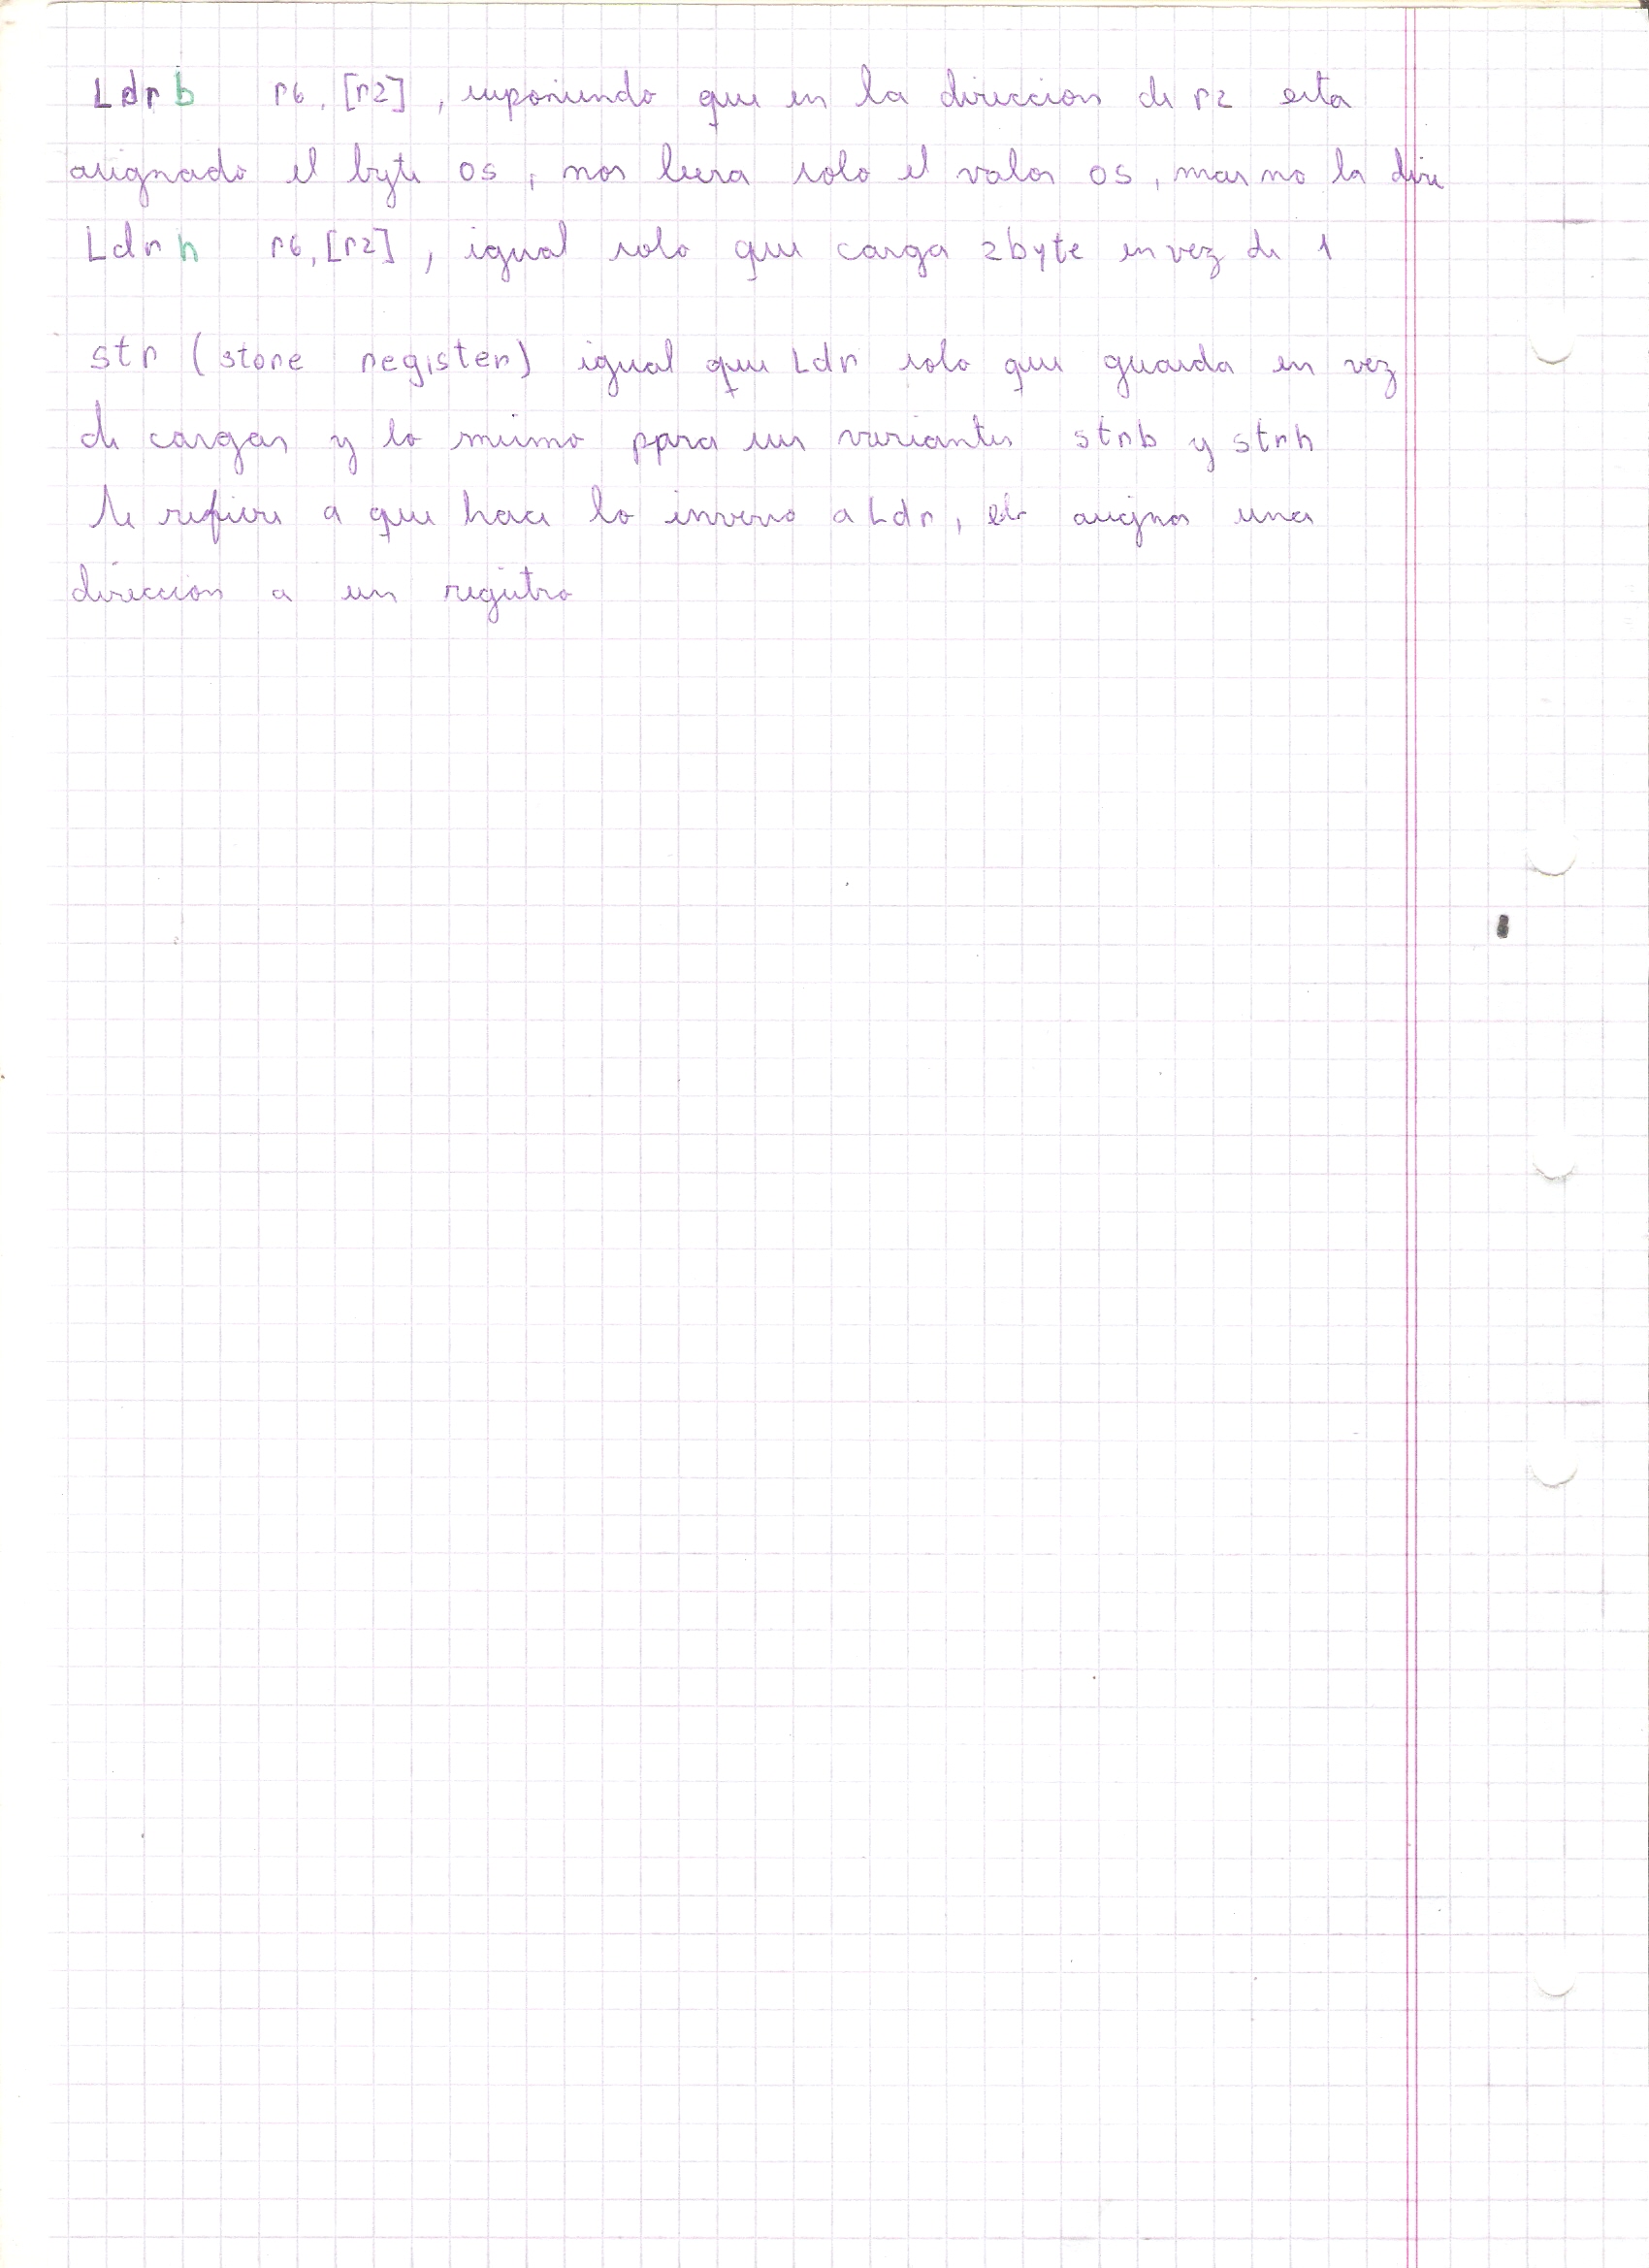 Ldrb r6, [r2], suponiendo que en la direccion de r2 esta
asignado el byte 05, nos leera solo el valor 05, mas no la dire
Ldrh r6, [r2], igual solo que carga 2byte en vez de 1
str (store register) igual que Ldr solo que guarda en vez
de cargar y lo mismo ppara sus variantes strb y strh
Se refiere a que hace lo inverso a Ldr, asigna una
direccion a un registro